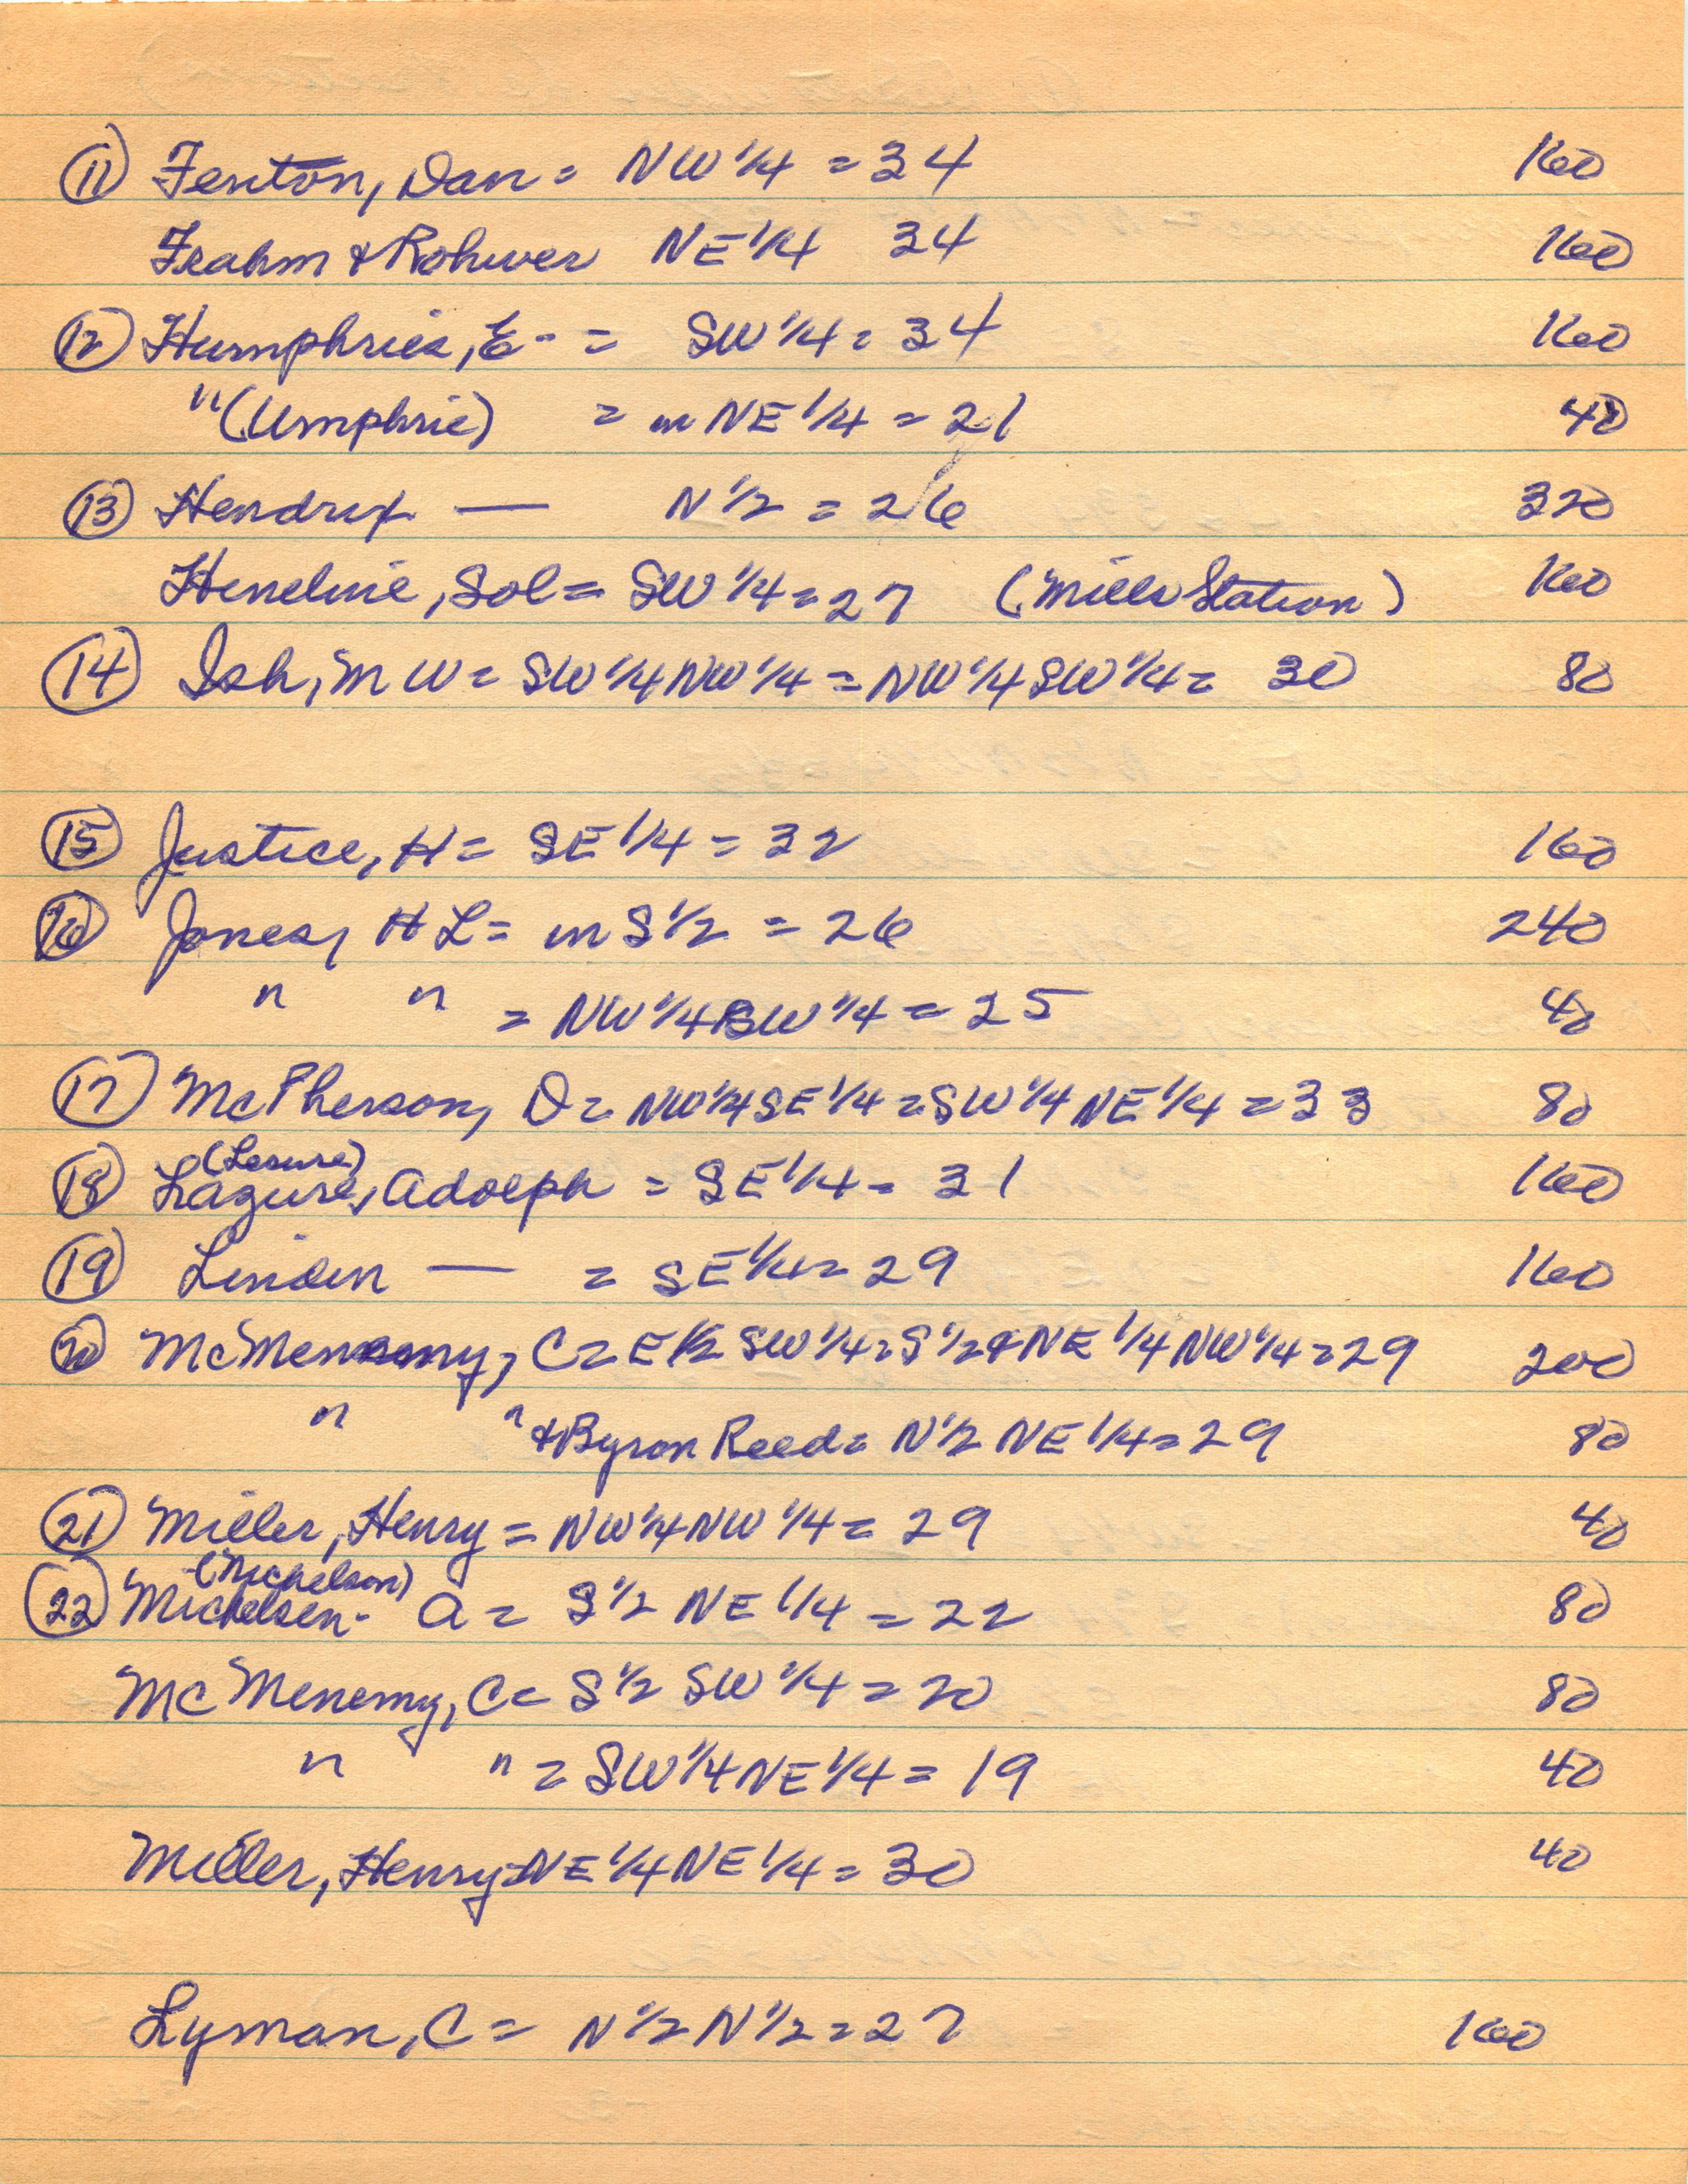 (11) Fenton, Dan = NW 1/4 = 34 160
Frahm & Rohwer NE 1/4 34 160
(12) Humphries, E- = SW 1/4 = 34 160
" (Umphrie) = in NE 1/4 = 21 40
(13) Hendrix — N 1/2 = 26 320
Heneline, Sol = SW 1/4 = 27 (Mills Station) 160
(14) Ish, M W = SW 1/4 NW 1/4 = NW 1/4 SW 1/4 = 30 80
(15) Justice, H = SE 1/4 = 32 160
(16) Jones, H L = in S 1/2 = 26 240
" " = NW 1/4 SW 1/4 = 25 40
(17) McPherson, D = NW 1/4 SE 1/4 = SW 1/4 NE 1/4 = 33 80
(Lesure)
(18) Lazure, Adolph = SE 1/4 = 31 160
(19) Linden — = SE 1/4 = 29 160
(20) McMenemy, C = E 1/2 SW 1/4 = S 1/2 & NE 1/4 NW 1/4 = 29 200
" " & Byron Reed = N 1/2 NE 1/4 = 29 80
(21) Miller, Henry = NW 1/4 NW 1/4 = 29 40
(Nichelson)
(22) Michelsen - A = S 1/2 NE 1/4 = 22 80
McMenemy, C = S 1/2 SW 1/4 = 20 80
" " = SW 1/4 NE 1/4 = 19 40
Miller, Henry = NE 1/4 NE 1/4 = 30 40
Lyman, C = N 1/2 N 1/2 = 27 160